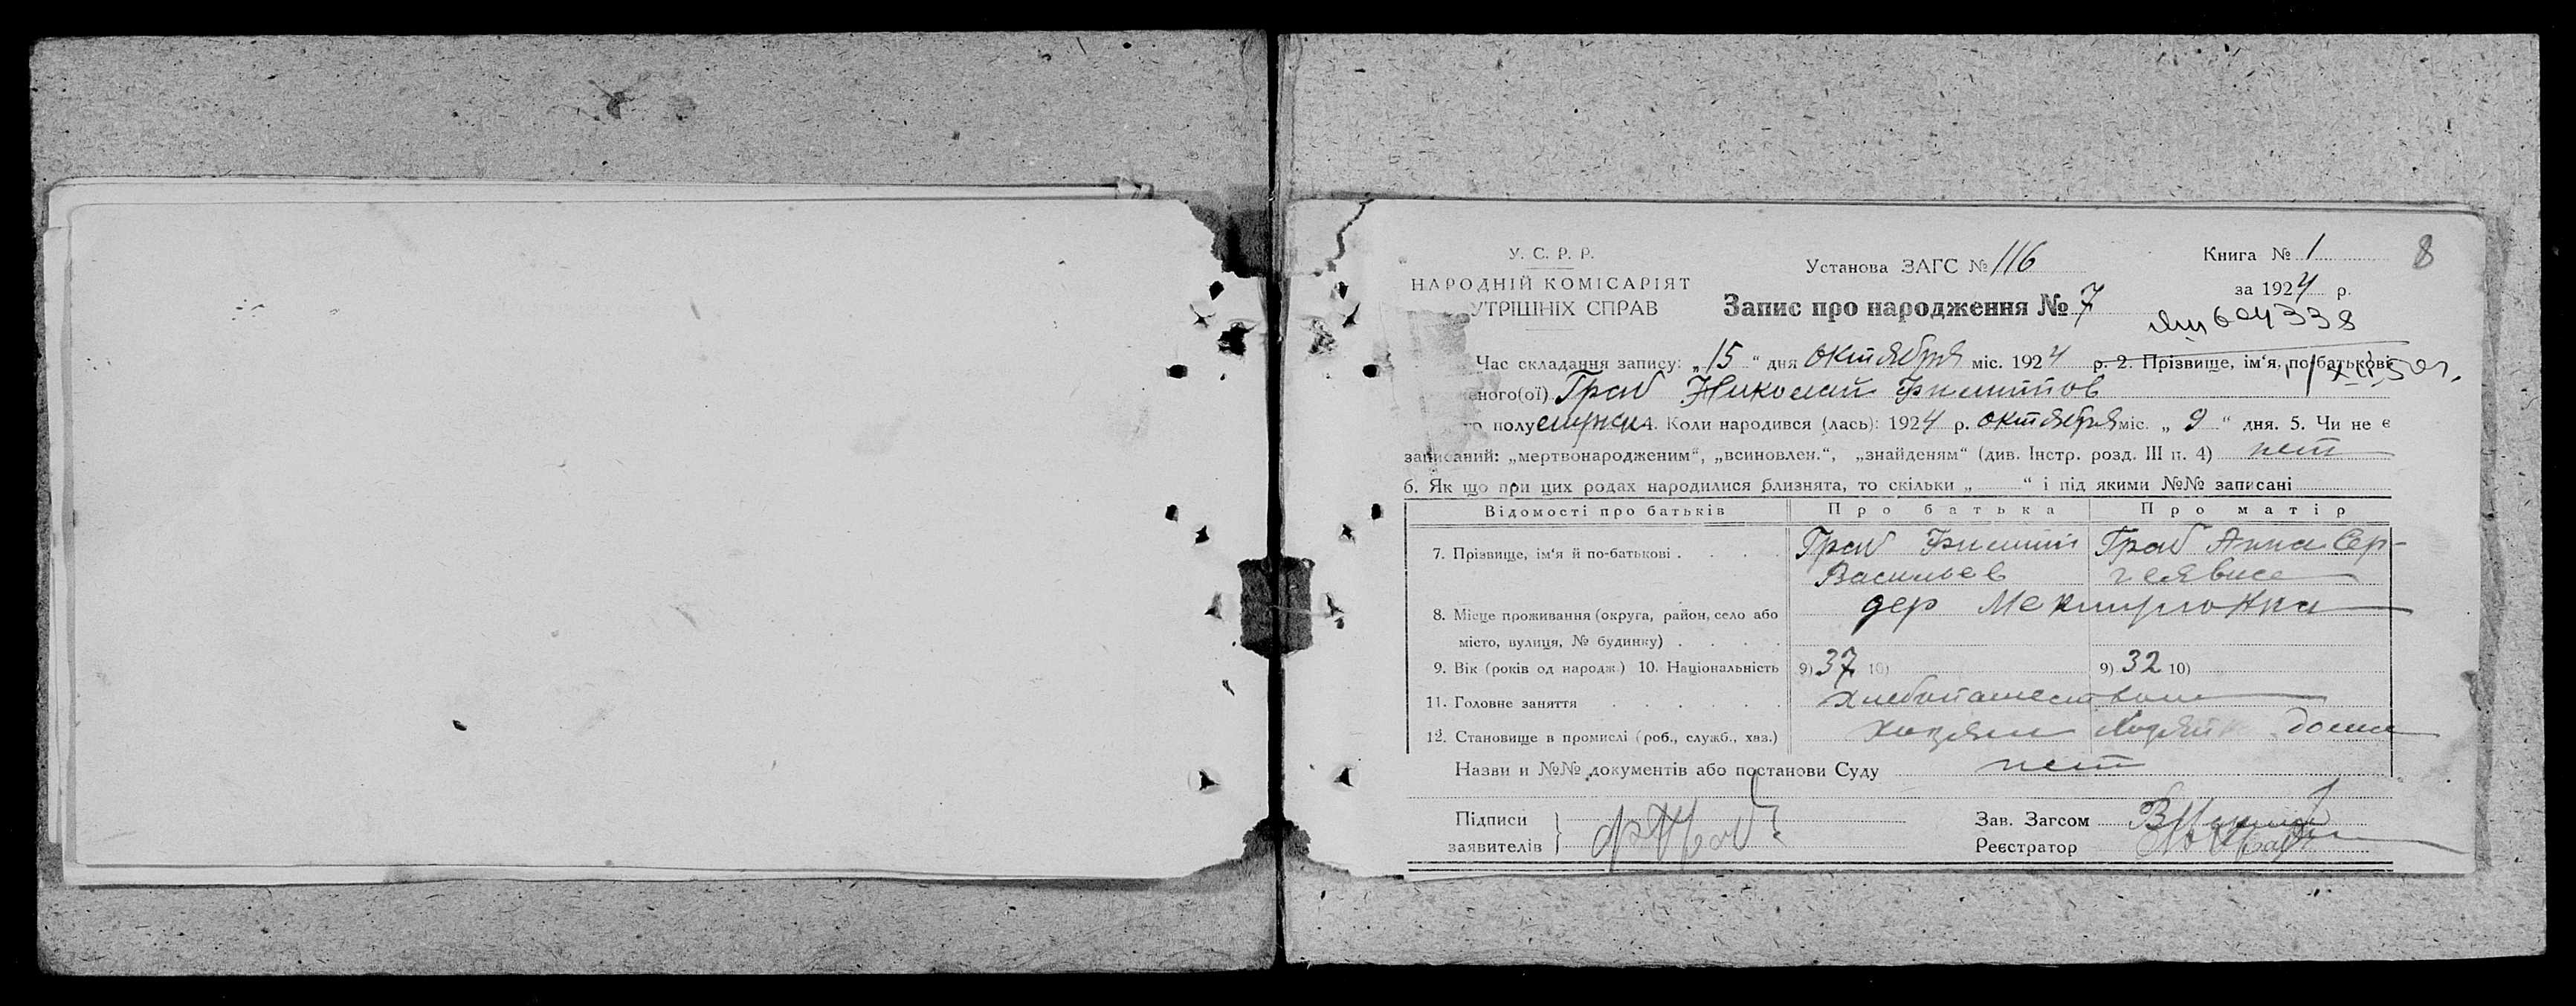 У. С. Р. Р.
НАРОДНІЙ КОМІСАРІЯТ
УТРІШНІХ СПРАВ
Установа ЗАГС № 116
Книга № 1
8
за 1924 р.
Запис про народження № 7
604338
Час складання запису: „15“ дня октября міс. 1924 р. 2. Прізвище, ім‘я, по батькові
еного(ої) Граб Николай Филиппов
полу 4. Коли народився (лась): 1924 р. октября міс. „9“ дня. 5. Чи не є
записаний: „мертвонародженим“, „всиновлен.“, „знайденям“ (див. Інстр. розд. III п. 4) нет
6. Як що при цих родах народилися близнята, то скільки „ “ і під якими №№ записані
Відомості про батьків Про батька Про матір
7. Прізвище, ім‘я й по-батькові . . . . Граб Филипп Граб Анна Сер-
Васильев геевна
8. Місце проживання (округа, район, село або дер
місто, вулиця, № будинку) . . . .
9. Вік (років од народж.) 10. Національність 9) 37 10) 9) 32 10)
11. Головне заняття . . . . . . хлебопашеством
12. Становище в промислі (роб., служб., хаз.) хозяин дома
Назви и №№ документів або постанови Суду нет
Підписи
заявителів
Зав. Загсом
Реєстратор